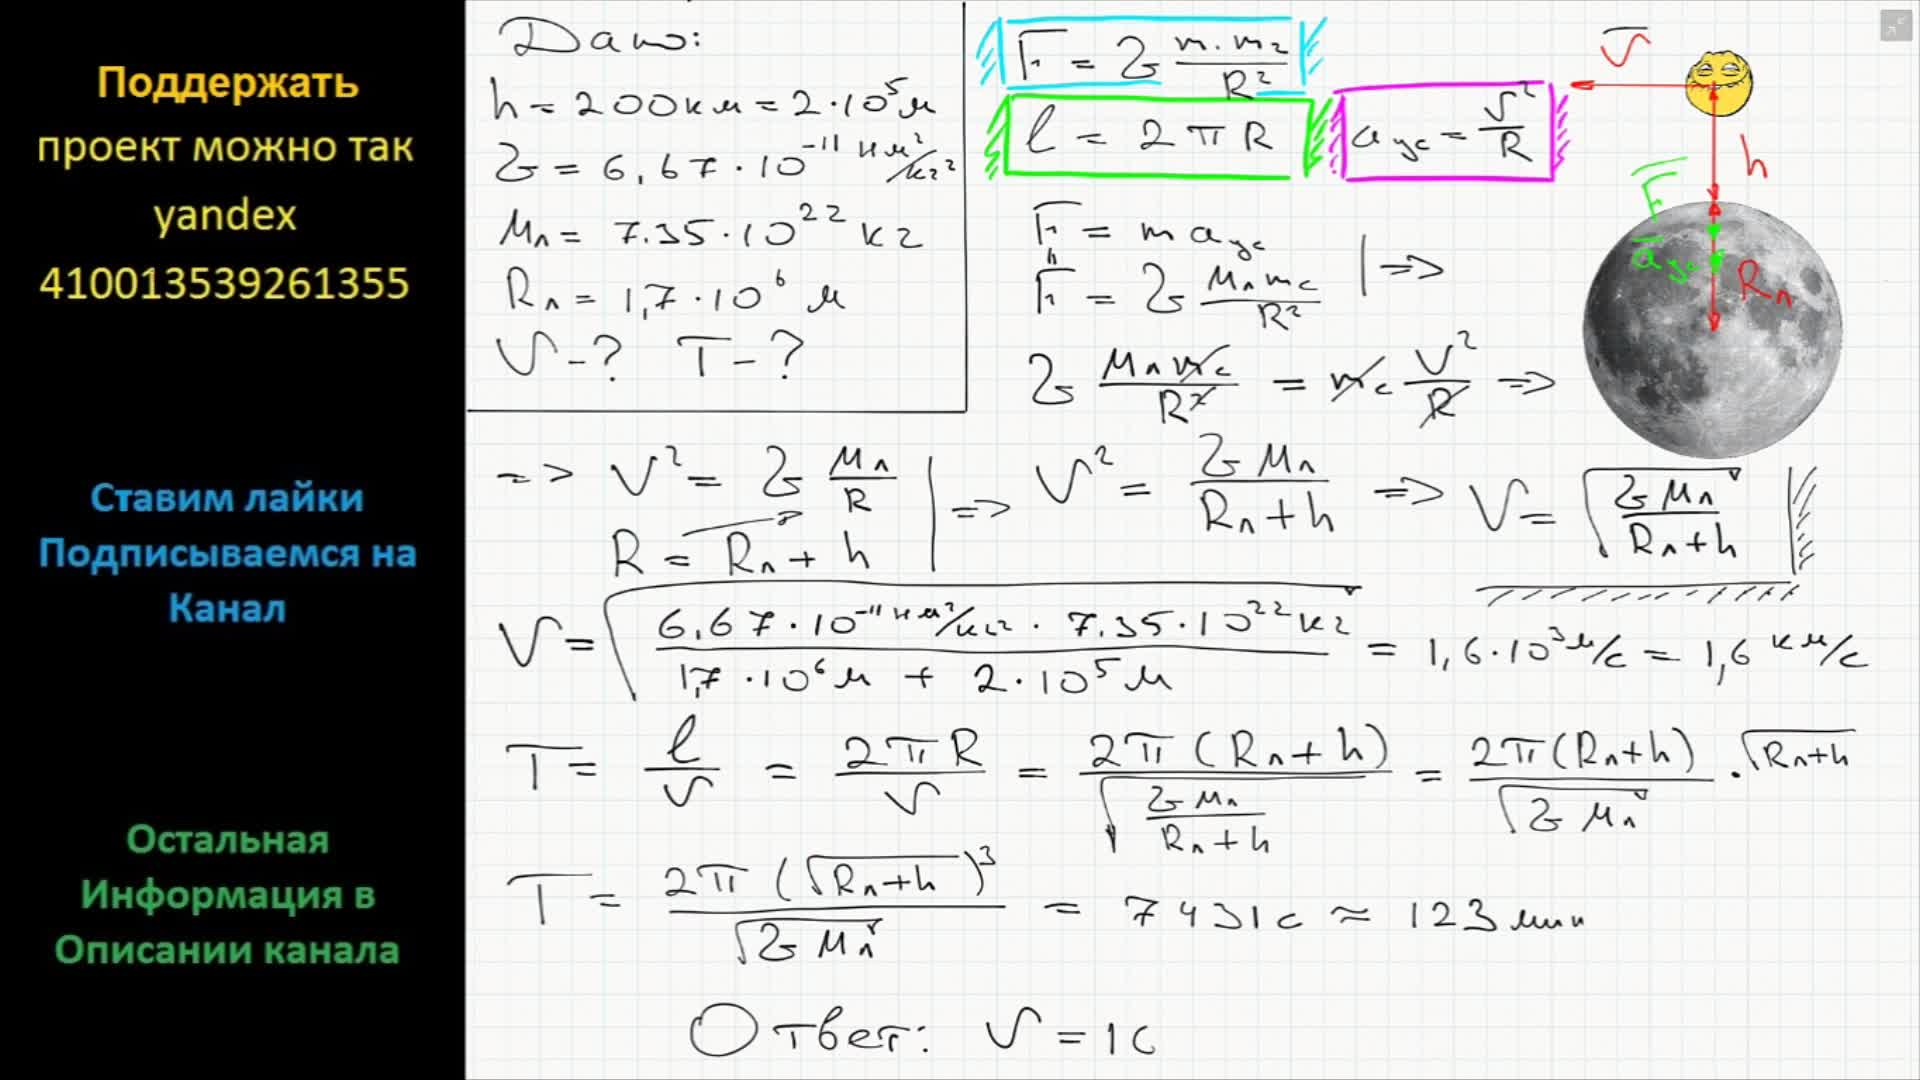 Поддержать
проект можно так
yandex
410013539261355
Ставим лайки
Подписываемся на
Канал
Остальная
Информация в
Описании канала
Дано:
h = 200км = 2·10⁵м
G = 6,67·10⁻¹¹ Нм²/кг²
Mл = 7.35·10²² кг
Rл = 1,7·10⁶ м
V-? T-?
F = G m·m₂/R²
l = 2πR
aус = V²/R
V
h
F
aус
Rл
F = m aус
F = G Mл mс/R² | =>
G Mл mс/R² = mс V²/R =>
=> V² = G Mл/R
R = Rл + h | => V² = G Mл/(Rл+h) => V = √(G Mл/(Rл+h))
V = √((6,67·10⁻¹¹ Нм²/кг² · 7.35·10²² кг)/(1,7·10⁶м + 2·10⁵м)) = 1,6·10³м/с = 1,6 км/с
T = l/V = 2πR/V = 2π(Rл+h)/√(G Mл/(Rл+h)) = 2π(Rл+h)/√(G Mл) · √(Rл+h)
T = 2π(√(Rл+h))³/√(G Mл) = 7431с ≈ 123мин
Ответ: V = 1